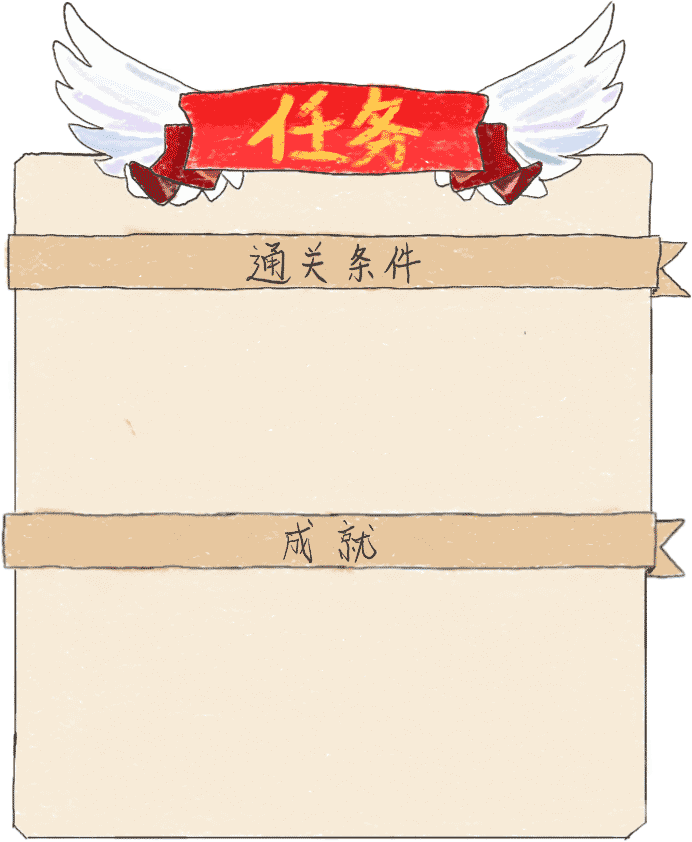 任务
通关条件
成就